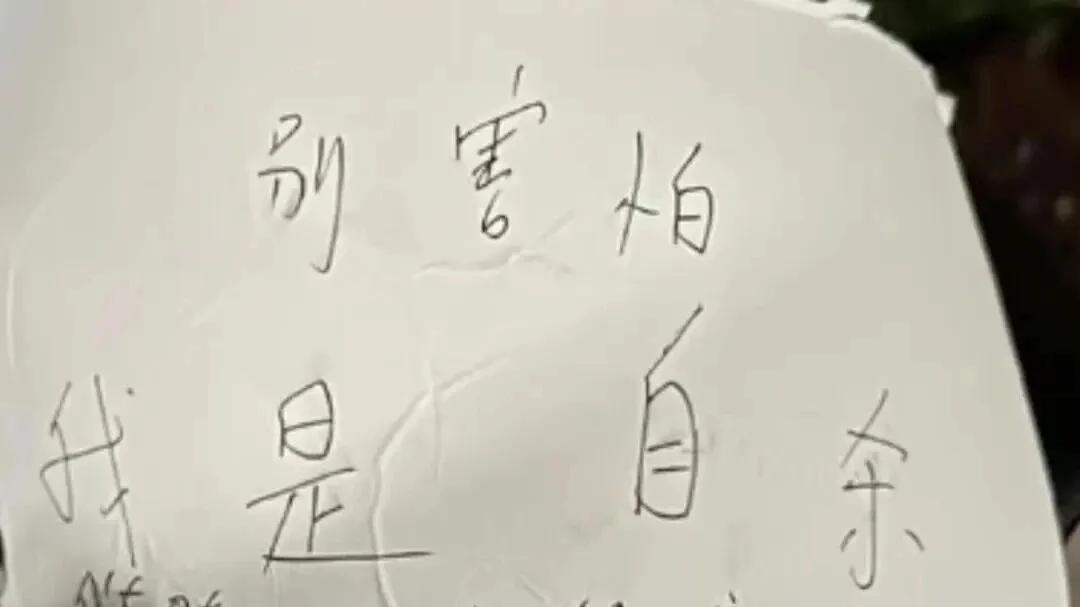 别害怕
我是自杀